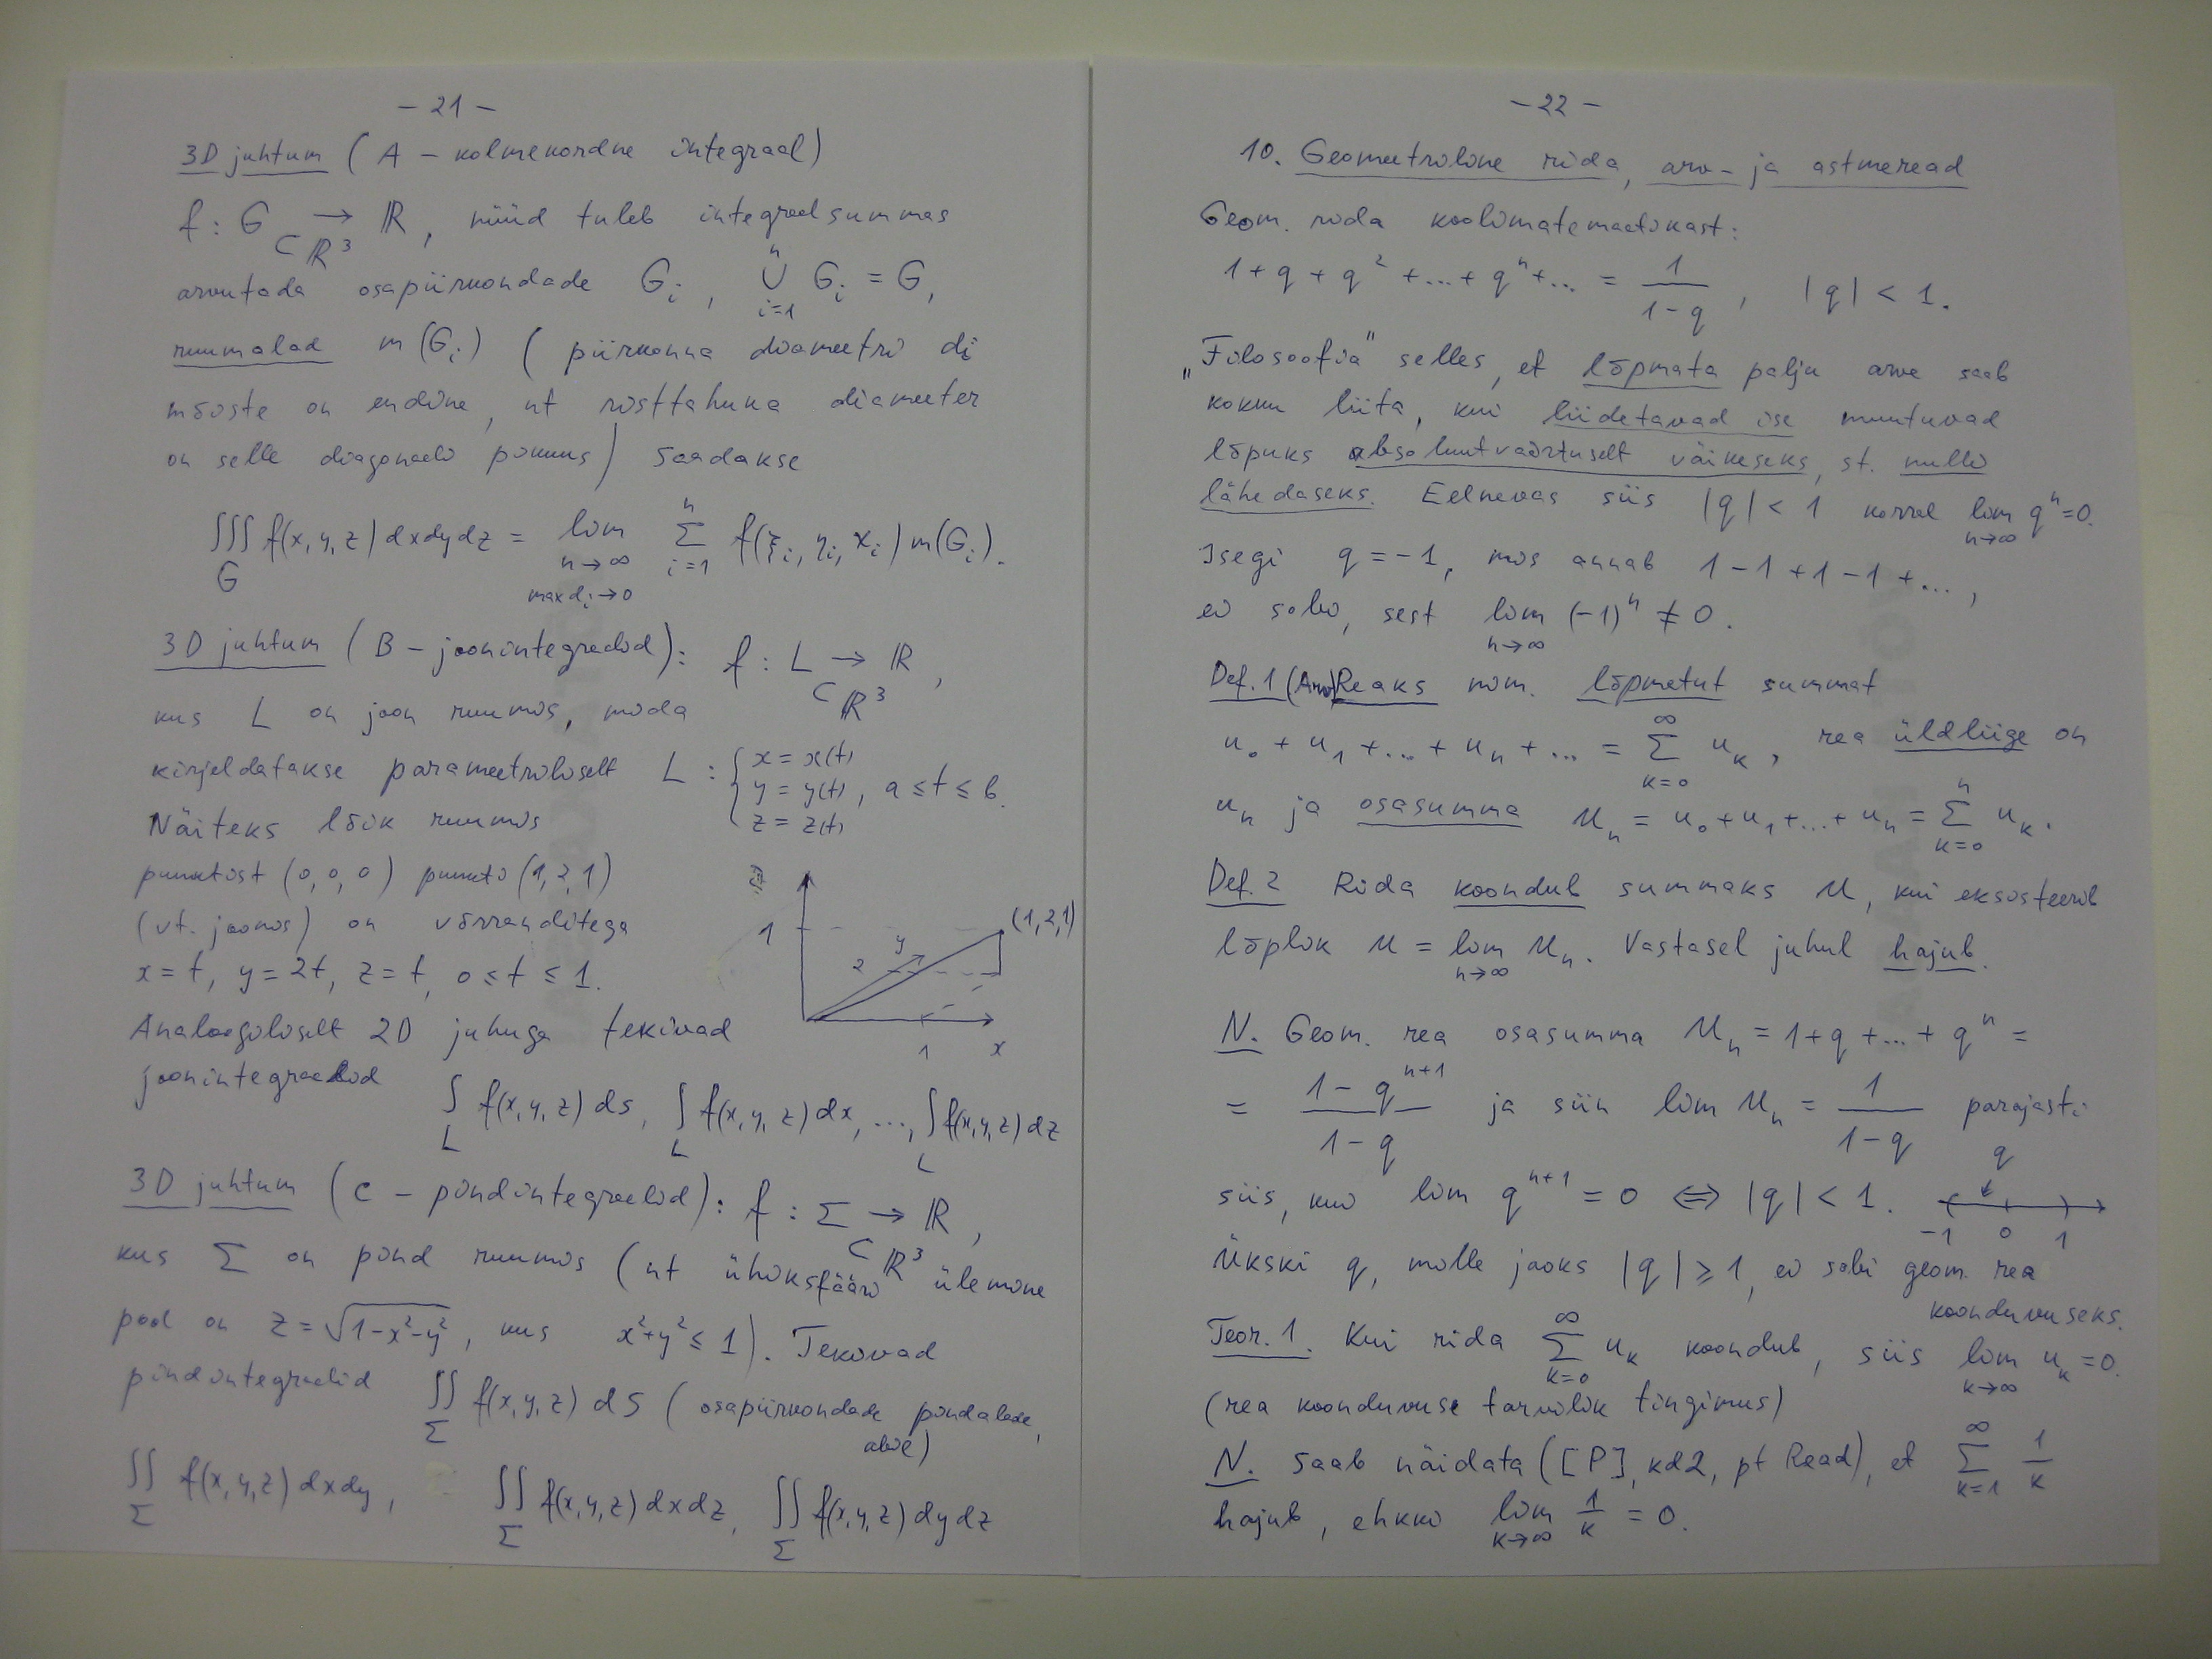 - 21 -
3D juhtum (A - kolmekordne integraal)
f : G → ℝ, nüüd tuleb integraalsummas
⊂ ℝ³
arvutada osapiirkondade G_i, ⋃_{i=1}^{n} G_i = G,
ruumalad m(G_i) (piirkonna diameetri d_i
mõiste on endine, nt risttahuka diameeter
on selle diagonaali pikkus) saadakse
∭_G f(x,y,z) dxdydz = lim_{n→∞, max d_i→0} Σ_{i=1}^{n} f(ξ_i, η_i, ϰ_i) m(G_i).
3D juhtum (B - joonintegraalid): f : L → ℝ,
⊂ ℝ³
kus L on joon ruumis, mida
kirjeldatakse parameetriliselt L : { x = x(t)
y = y(t), a ≤ t ≤ b.
z = z(t)
Näiteks lõik ruumis
punktist (0,0,0) punkti (1,2,1)
(vt. joonis) on võrranditega
x = t, y = 2t, z = t, 0 ≤ t ≤ 1.
1
2
y
(1,2,1)
1
x
Analoogiliselt 2D juhuga tekivad
joonintegraalid ∫_L f(x,y,z) ds, ∫_L f(x,y,z) dx, ..., ∫_L f(x,y,z) dz
3D juhtum (C - pindintegraalid): f : Σ → ℝ,
⊂ ℝ³
kus Σ on pind ruumis (nt ühiksfääri ülemine
pool on z = √(1-x²-y²), kus x²+y² ≤ 1). Tekivad
pindintegraalid ∬_Σ f(x,y,z) dS (osapiirkondade pindalade,
abil)
∬_Σ f(x,y,z) dxdy, ∬_Σ f(x,y,z) dxdz, ∬_Σ f(x,y,z) dydz
- 22 -
10. Geomeetriline rida, arv- ja astmeread
Geom. rida koolimatemaatikast:
1 + q + q² + ... + qⁿ + ... = 1/(1-q), |q| < 1.
„Filosoofia" selles, et lõpmata palju arve saab
kokku liita, kui liidetavad ise muutuvad
lõpuks absoluutväärtuselt väikeseks, st. nulli
lähedaseks. Eelnevas siis |q| < 1 korral lim_{n→∞} qⁿ = 0.
Isegi q = -1, mis annab 1 - 1 + 1 - 1 + ...,
ei sobi, sest lim_{n→∞} (-1)ⁿ ≠ 0.
Def. 1 (Arv)Reaks nim. lõpmatut summat
u₀ + u₁ + ... + u_n + ... = Σ_{k=0}^{∞} u_k, rea üldliige on
u_n ja osasumma U_n = u₀ + u₁ + ... + u_n = Σ_{k=0}^{n} u_k.
Def. 2 Rida koondub summaks U, kui eksisteerib
lõplik U = lim_{n→∞} U_n. Vastasel juhul hajub.
N. Geom. rea osasumma U_n = 1 + q + ... + qⁿ =
= (1 - q^{n+1})/(1-q) ja siin lim U_n = 1/(1-q) parajasti
siis, kui lim q^{n+1} = 0 ⇔ |q| < 1.
q
-1 0 1
Ükski q, mille jaoks |q| ≥ 1, ei sobi geom. rea
koonduvuseks.
Teor. 1. Kui rida Σ_{k=0}^{∞} u_k koondub, siis lim_{k→∞} u_k = 0.
(rea koonduvuse tarvilik tingimus)
N. Saab näidata ([P], kd2, pt Read), et Σ_{k=1}^{∞} 1/k
hajub, ehkki lim_{k→∞} 1/k = 0.